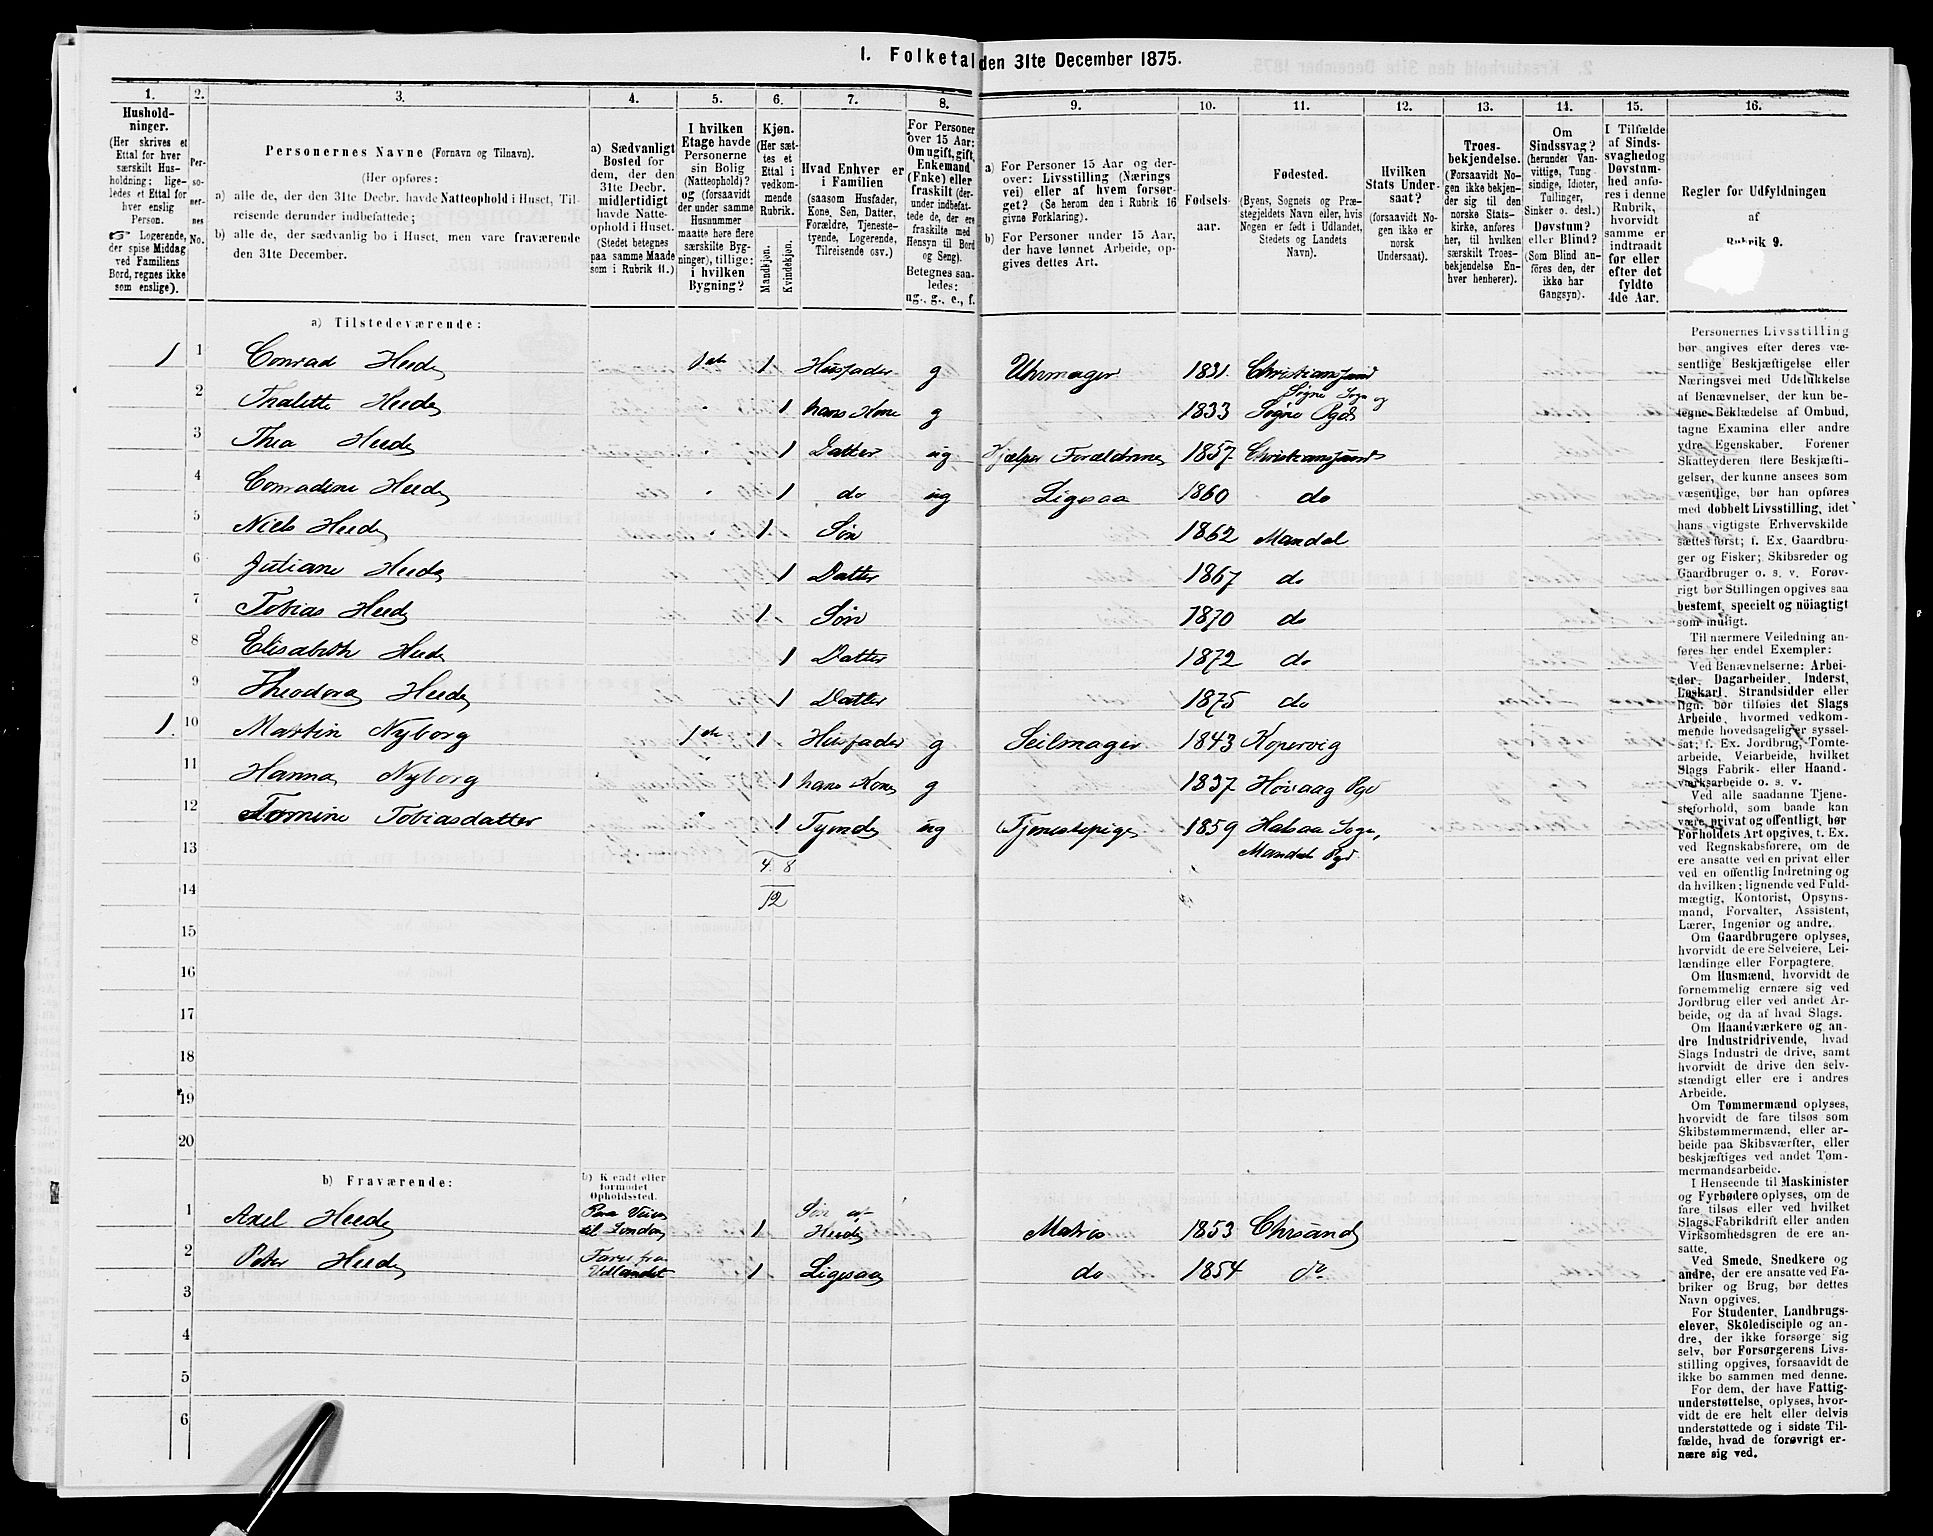 1. Folketal den 31te December 1875.
1. 2. 3. 4. 5. 6. 7. 8. 9. 10. 11. 12. 13. 14. 15. 16.
Hushold-
ninger.
(Her skrives et
Ettal for hver
særskilt Hus-
holdning; lige-
ledes et Ettal for
hver enslig
Person.
☞ Logerende,
der spise Middag
ved Familiens
Bord, regnes ikke
som enslige).
Per-
so-
ner-
nes
No.
Personernes Navne (Fornavn og Tilnavn).
(Her opføres:
a) alle de, der den 31te Decbr. havde Natteophold i Huset, Til-
reisende derunder indbefattede;
b) alle de, der sædvanlig bo i Huset, men vare fraværende
den 31te December.
a) Sædvanligt
Bosted for
dem, der den
31te Decbr.
midlertidigt
havde Natte-
ophold i Huset.
(Stedet betegnes
paa samme Maade
som i Rubrik 11.)
I hvilken
Etage havde
Personerne
sin Bolig
(Natteophold)?
og (forsaavidt
der under samme
Husnummer
maatte høre flere
særskilte Byg-
ninger), tillige:
i hvilken
Bygning?
Kjøn.
(Her sæt-
tes et
Ettal i
vedkom-
mende
Rubrik.
Mandkjøn.
Kvindekjøn.
Hvad Enhver er
i Familien
(saasom Husfader,
Kone, Søn, Datter,
Forældre, Tjeneste-
tyende, Logerende,
Tilreisende osv.)
For Personer
over 15 Aar:
Om ugift, gift,
Enkemand
(Enke) eller
fraskilt (der-
under indbefat-
tede de, der ere
fraskilte med
Hensyn til Bord
og Seng).
Betegnes saa-
ledes:
ug., g., e., f.
a) For Personer 15 Aar og der-
over: Livsstilling (Nærings
vei) eller af hvem forsør-
get? (Se herom den i Rubrik 16
givne Forklaring).
b) For Personer under 15 Aar,
der have lønnet Arbeide, op-
gives dettes Art.
Fødsels-
aar.
Fødested.
(Byens, Sognets og Præ-
stegjeldets Navn eller, hvis
Nogen er født i Udlandet,
Stedets og Landets
Navn).
Hvilken
Stats Under-
saat?
(forsaavidt No-
gen ikke er
norsk
Undersaat).
Troes-
bekjendelse.
(Forsaavidt No-
gen ikke bekjen-
der sig til den
norske Stats-
kirke, anføres
her, til hvilken
særskilt Troes-
bekjendelse En-
hver henhører).
Om
Sindssvag?
(herunder Van-
vittige, Tung
sindige, Idioter,
Tullinger,
Sinker o. desl.)
Døvstum?
eller Blind?
(Som Blind an-
føres den, der
ikke har
Gangsyn).
I Tilfælde
af Sinds-
svaghed og
Døvstum-
hed anfø-
res i denne
Rubrik,
hvorvidt
samme er
indtraadt
før eller
efter det
fyldte
4de Aar.
Regler for Udfyldningen
af
Rubrik 9.
a) Tilstedeværende:
1 1 Conrad Heede 1ste 1 Husfader g Uhrmager 1831. Christianssand
2 Thalette Heede " 1 hans Kone g 1833 Søgne Sogn og
Søgne Pgd
3 Thea Heede " 1 Datter ug Hjælper Forældrene 1857. Christianssand
4 Conradine Heede " 1 do ug Ligesaa 1860 do
5 Niels Heede " 1. Søn 1862 Mandal
6 Juliane Heede 1 Datter 1867 do
7 Tobias Heede 1. Søn 1870 do
8 Elisabeth Heede 1 Datter 1872 do
9 Theodora Heede 1 Datter 1875 do
1. 10 Martin Nyborg 1ste 1 Husfader g Seilmager 1843 Kopervig
11 Hanna Nyborg " 1 hans Kone g 1837 Høivaag Pgd
12 Tomine Tobiasdatter " 1 Tyende ug Tjenestepige 1859 Halsaa Sogn,
Mandal Pgd.
13 4. 8
14 12
15
16
17
18
19
20
b) Fraværende:
b) Kjendt eller
formodet
Opholdssted.
1 Axel Heede Paa Veien
til London 1 Søn af
Heede Matros 1853 Chrsand
2 Peter Heede Fare fra
Udlandet 1 Ligesaa do 1854 do
3
4
5
6
Personernes Livsstilling
bør angives efter deres væ-
sentlige Beskjæftigelse eller
Næringsvei med Udelukkelse
af Benævnelser, der kun be-
tegne Beklædelse af Ombud,
tagne Examina eller andre
ydre Egenskaber. Forener
Skatteyderen flere Beskjæfti-
gelser, der kunne ansees som
væsentlige, bør han opføres
med dobbelt Livsstilling, idet
hans vigtigste Erhvervskilde
sættes først; f. Ex. Gaardbru-
ger og Fisker; Skibsreder og
Gaardbruger o. s. v. Forøv-
rigt bør Stillingen opgives saa
bestemt, specielt og nöiagtigt
som muligt.
Til nærmere Veiledning an-
føres her endel Exempler:
Ved Benævnelserne: Arbei-
der, Dagarbeider, Inderst,
Løskarl, Strandsidder eller
lign. bør tilføies det Slags
Arbeide, hvormed vedkom-
mende hovedsagelig er syssel-
sat; f. Ex. Jordbrug, Tomte-
arbeide, Veiarbeide, hvilket
Slags Fabrik- eller Haand-
værksarbeide o. s. v.
Ved alle saadanne Tjene-
steforhold, som baade kan
være privat og offentlig, bør
Forholdets Art opgives, t. Ex.
ved Regnskabsførere, om de
ere ansatte ved en privat eller
ved en offentlig Indretning og
da hvilken; lignende ved Fuld-
mægtig, Kontorist, Opsyns-
mand, Forvalter, Assistent,
Lærer, Ingeniør og andre.
Om Gaardbrugere oplyses,
hvorvidt de ere Selveiere, Lei-
lændinge eller Forpagtere.
Om Husmænd, hvorvidt de
fornemmelig ernære sig ved
Jordbrug eller ved andet Ar-
beide, og da af hvad Slags.
Om Haandværkere og an-
dre Industridrivende, hvad
Slags Industri de drive, samt
hvorvidt de drive den selv-
stændigt eller ere i andres
Arbeide.
Om Tømmermænd oplyses,
hvorvidt de fare tilsøs som
Skibstømmermænd, eller ar-
beide paa Skibsværfter, eller
beskjæftiges ved andet Tøm-
mermandsarbeide.
I Henseende til Maskinister
og Fyrbødere oplyses, om de
fare tilsøs eller ved hvilket
Slags Fabrikdrift eller anden
Virksomhedsgren de ere an-
satte.
Ved Smede, Snedkere og
andre, der ere ansatte ved Fa-
briker og Brug, bør dettes
Navn opgives.
For Studenter, Landbrugs-
elever, Skoledisciple og an-
dre, der ikke forsørge sig
selv, bør Forsørgerens Livs-
stilling opgives, forsaavidt de
ikke bo sammen med denne.
For dem, der have Fattig-
understøttelse, oplyses, hvor-
vidt de ere helt eller delvis
understøttede og i sidste Til-
fælde, hvad de forøvrigt er-
nære sig ved.